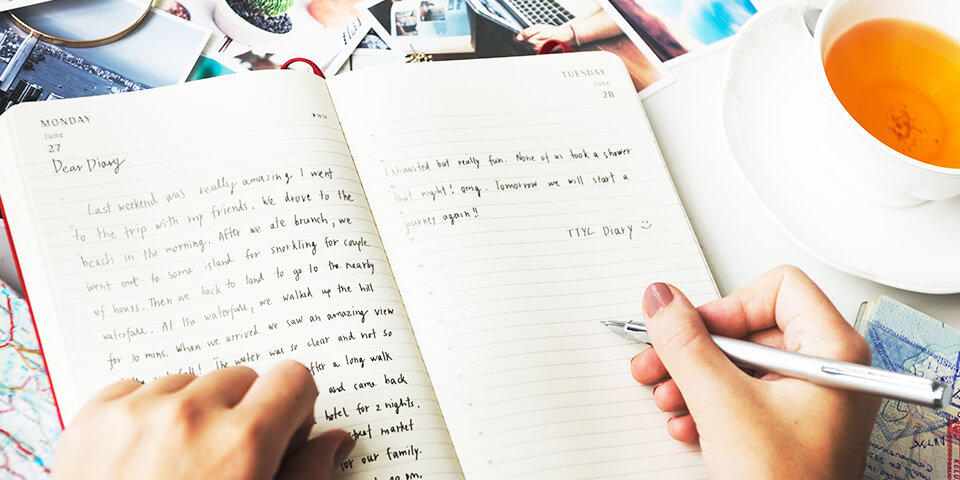 MONDAY
June
27
Dear Diary
Last weekend was really amazing I went
to the trip with my friends. We drove to the
beach in the morning. After we ate brunch, we
went out to some island for snorkling for couple
of hours. Then we back to land to go to the nearby
waterfall. At the waterfall, we walked up the hill
for 30 mins. When we arrived we saw an amazing view
The water was so clear and not so
after a long walk
and came back
hotel for 2 nights.
market
for our family.
pm.
TUESDAY
June
28
Exhausted but really fun. None of us took a shower
that night! omg. Tomorrow we will start a
journey again!!
TTYL Diary